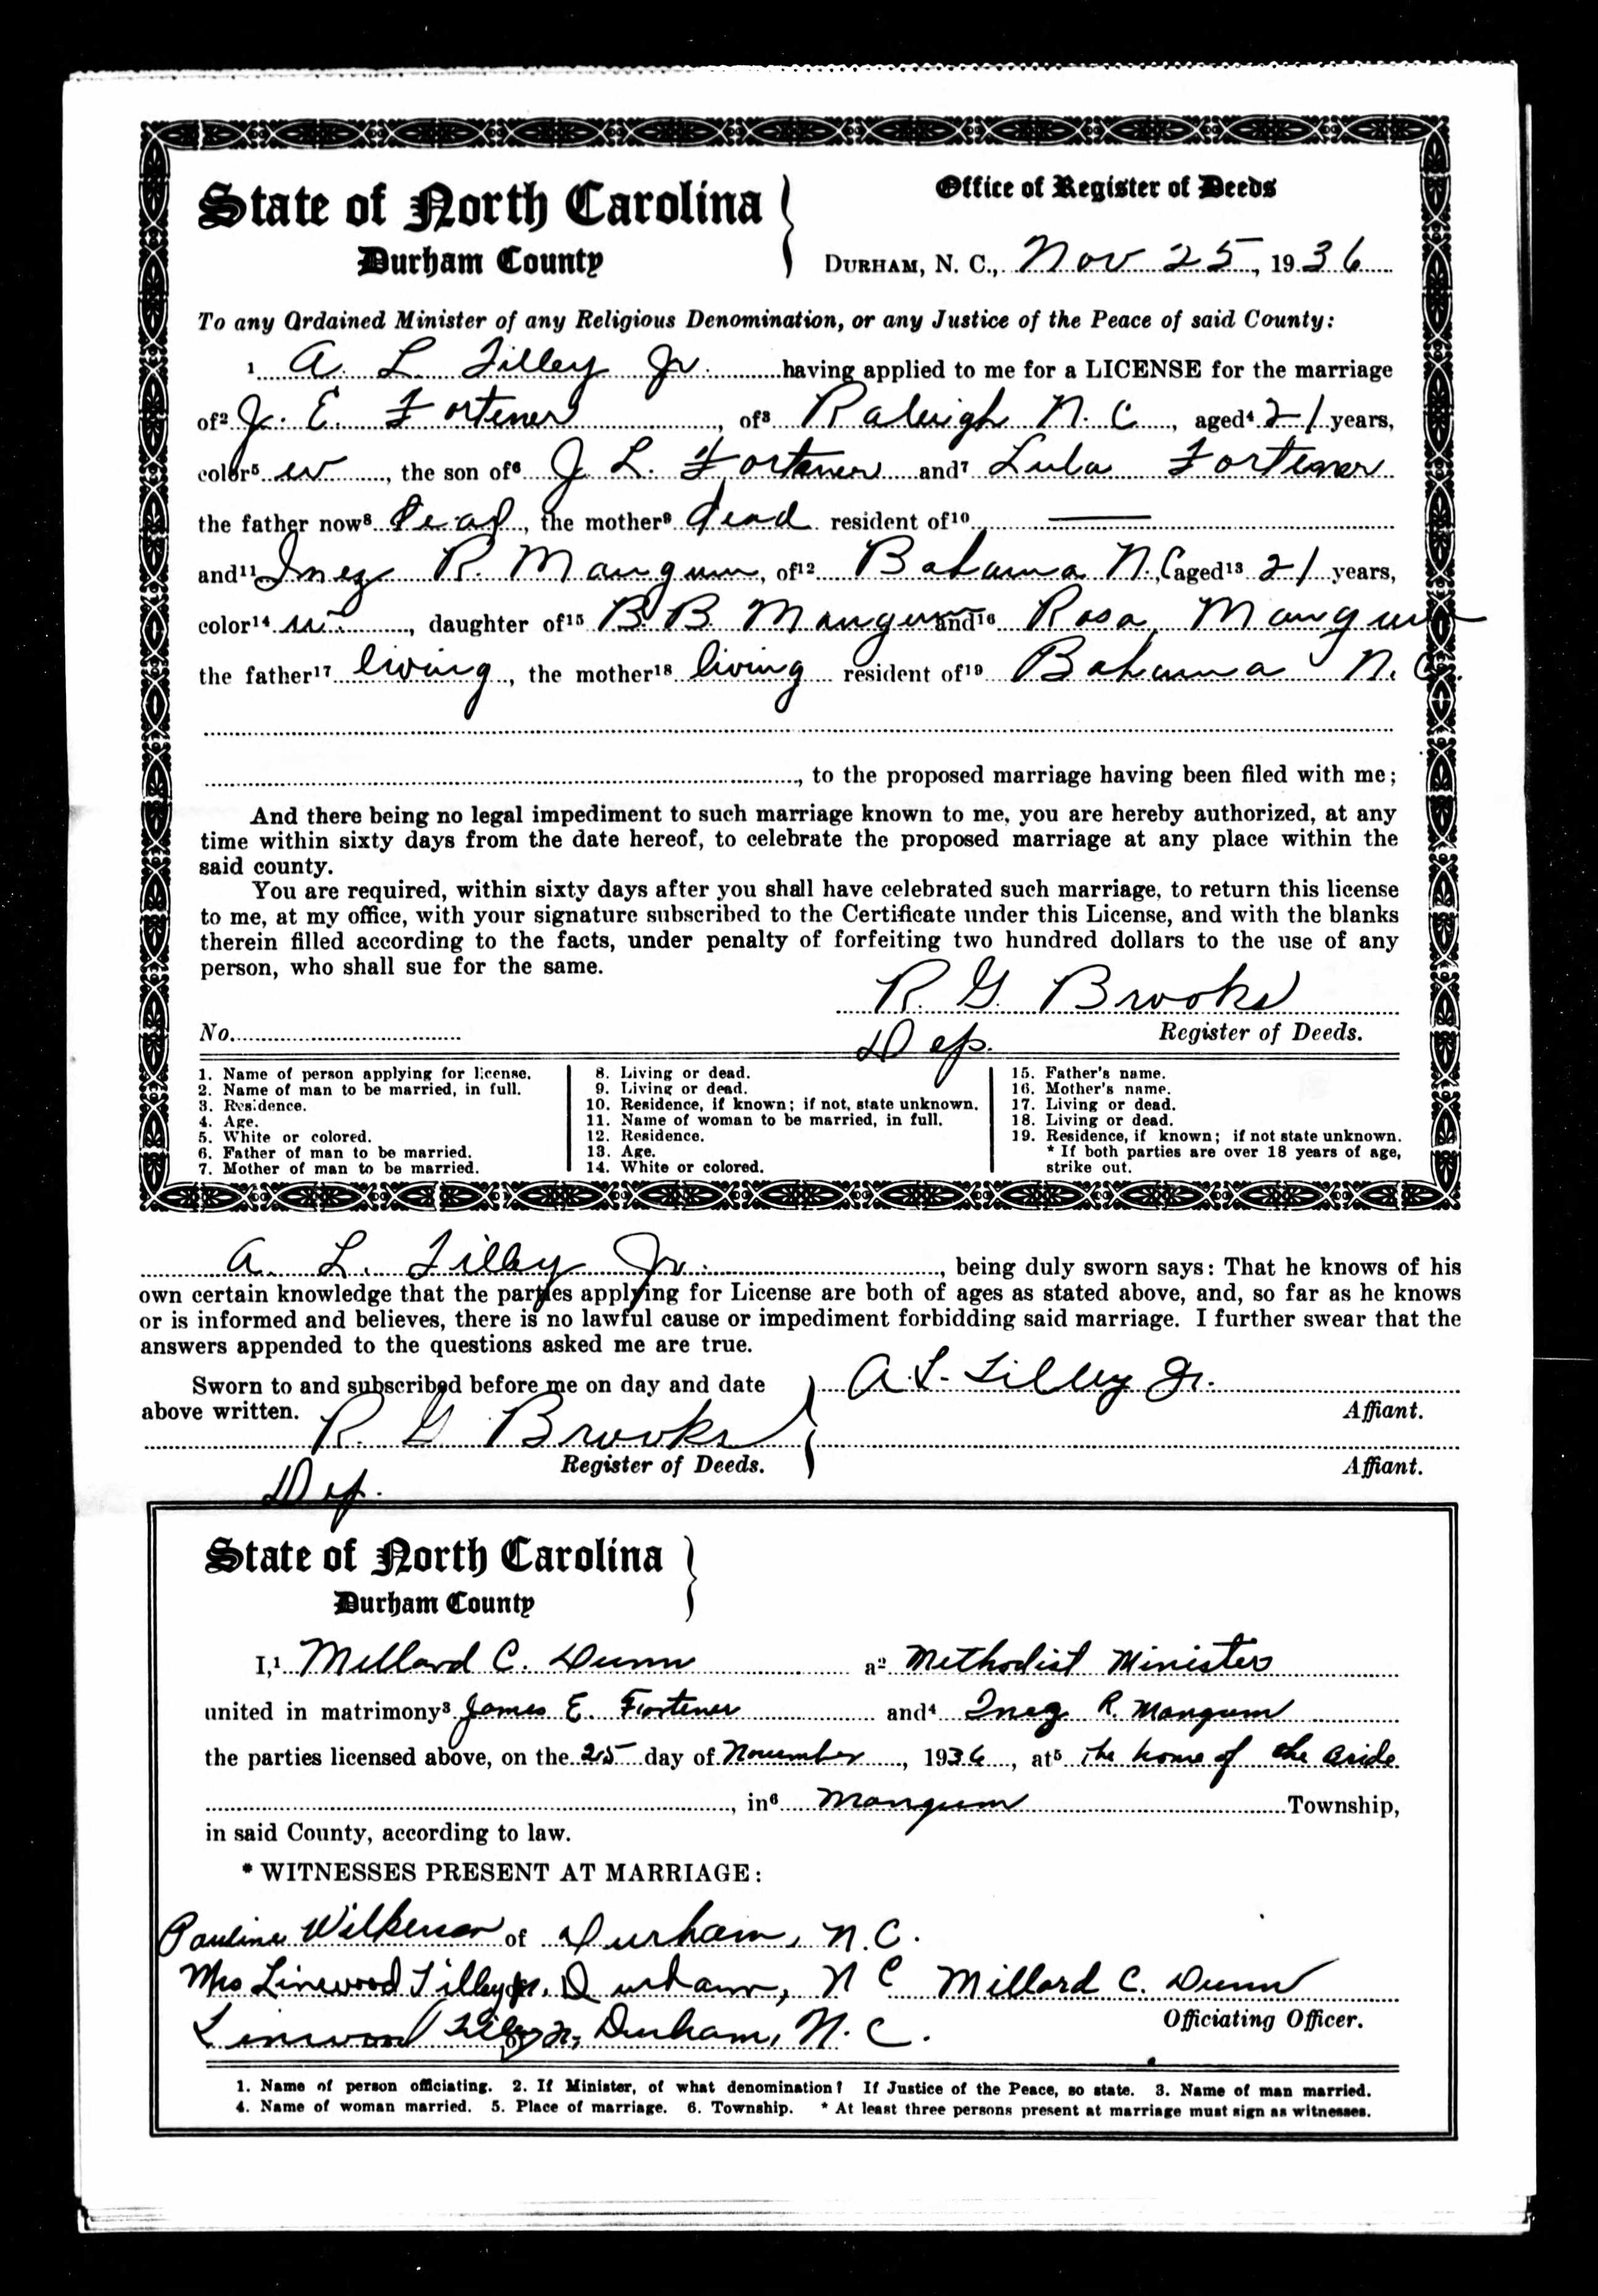 State of North Carolina
Durham County
Office of Register of Deeds
DURHAM, N. C., Nov 25, 1936
To any Ordained Minister of any Religious Denomination, or any Justice of the Peace of said County:
1 A. L. Tilley Jr. having applied to me for a LICENSE for the marriage
of2 J. E. Fortener, of3 Raleigh N. C., aged4 21 years,
color5 w, the son of6 J. L. Fortener and7 Lula Fortener
the father now8 dead, the mother9 dead resident of10 —
and11 Inez R. Mangum, of12 Bahama N. C aged13 21 years,
color14 w, daughter of15 B. B. Mangum and16 Rosa Mangum
the father17 living, the mother18 living resident of19 Bahama N. C.
, to the proposed marriage having been filed with me;
And there being no legal impediment to such marriage known to me, you are hereby authorized, at any
time within sixty days from the date hereof, to celebrate the proposed marriage at any place within the
said county.
You are required, within sixty days after you shall have celebrated such marriage, to return this license
to me, at my office, with your signature subscribed to the Certificate under this License, and with the blanks
therein filled according to the facts, under penalty of forfeiting two hundred dollars to the use of any
person, who shall sue for the same.
R. G. Brooks
No. Dep. Register of Deeds.
1. Name of person applying for license.
2. Name of man to be married, in full.
3. Residence.
4. Age.
5. White or colored.
6. Father of man to be married.
7. Mother of man to be married.
8. Living or dead.
9. Living or dead.
10. Residence, if known; if not, state unknown.
11. Name of woman to be married, in full.
12. Residence.
13. Age.
14. White or colored.
15. Father's name.
16. Mother's name.
17. Living or dead.
18. Living or dead.
19. Residence, if known; if not state unknown.
* If both parties are over 18 years of age,
strike out.
A. L. Tilley Jr., being duly sworn says: That he knows of his
own certain knowledge that the parties applying for License are both of ages as stated above, and, so far as he knows
or is informed and believes, there is no lawful cause or impediment forbidding said marriage. I further swear that the
answers appended to the questions asked me are true.
Sworn to and subscribed before me on day and date
above written.
R. G Brooks
Register of Deeds.
Dep.
A. L. Tilley Jr.
Affiant.
Affiant.
State of North Carolina
Durham County
I,1 Millard C. Dunn a2 Methodist Minister
united in matrimony3 James E. Fortener and4 Inez R. Mangum
the parties licensed above, on the 25 day of November, 1936, at5 the home of the Bride
, in6 Mangum Township,
in said County, according to law.
* WITNESSES PRESENT AT MARRIAGE:
Pauline Wilkerson of Durham, N.C.
Mrs Linwood Tilley Jr. Durham, N C Millard C. Dunn
Linwood Tilley Jr, Durham, N. C. Officiating Officer.
1. Name of person officiating. 2. If Minister, of what denomination? If Justice of the Peace, so state. 3. Name of man married.
4. Name of woman married. 5. Place of marriage. 6. Township. * At least three persons present at marriage must sign as witnesses.